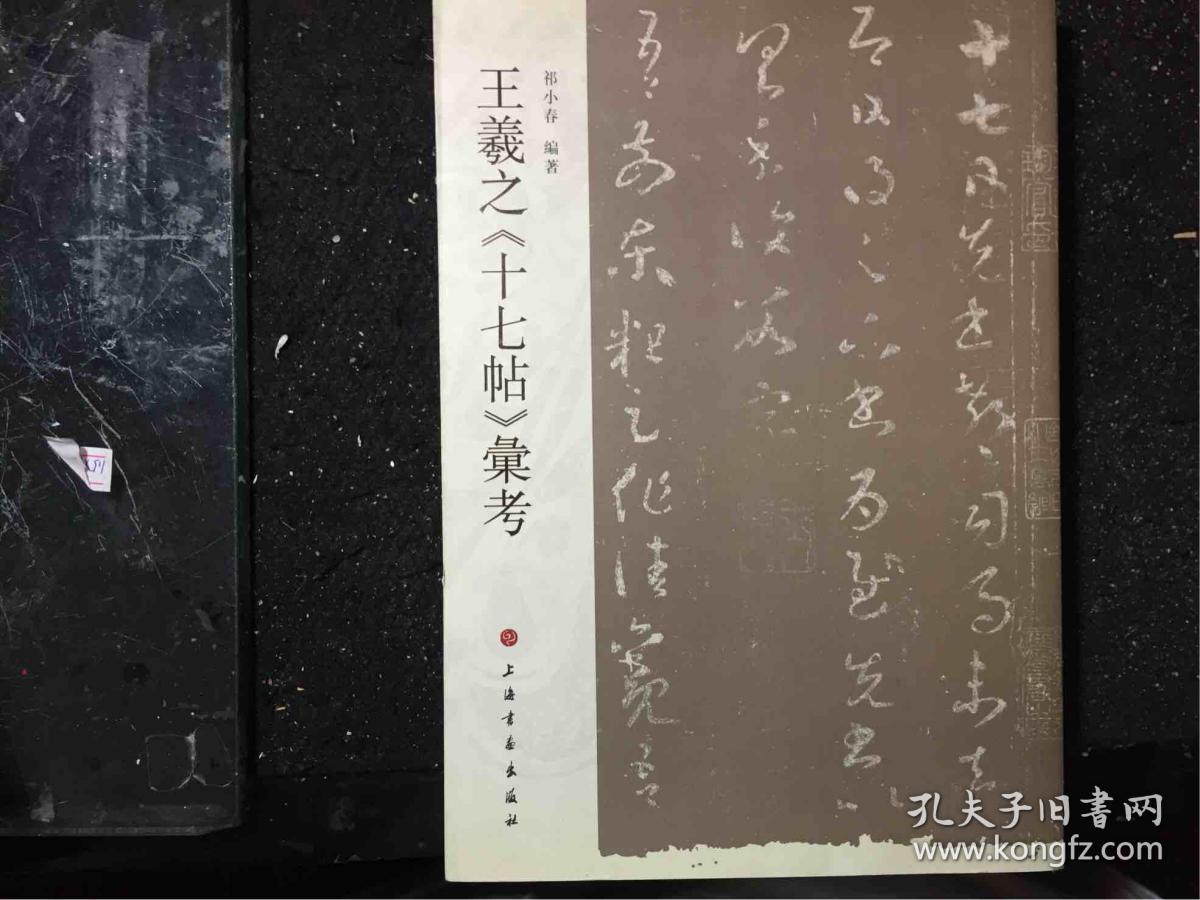 王羲之《十七帖》彙考
祁小春 编著
上海書畫出版社
十七日先書郗司馬未去
即日得足下書為慰先書以
具示復數字
吾前東粗足作佳觀吾
孔夫子旧书网
www.kongfz.com